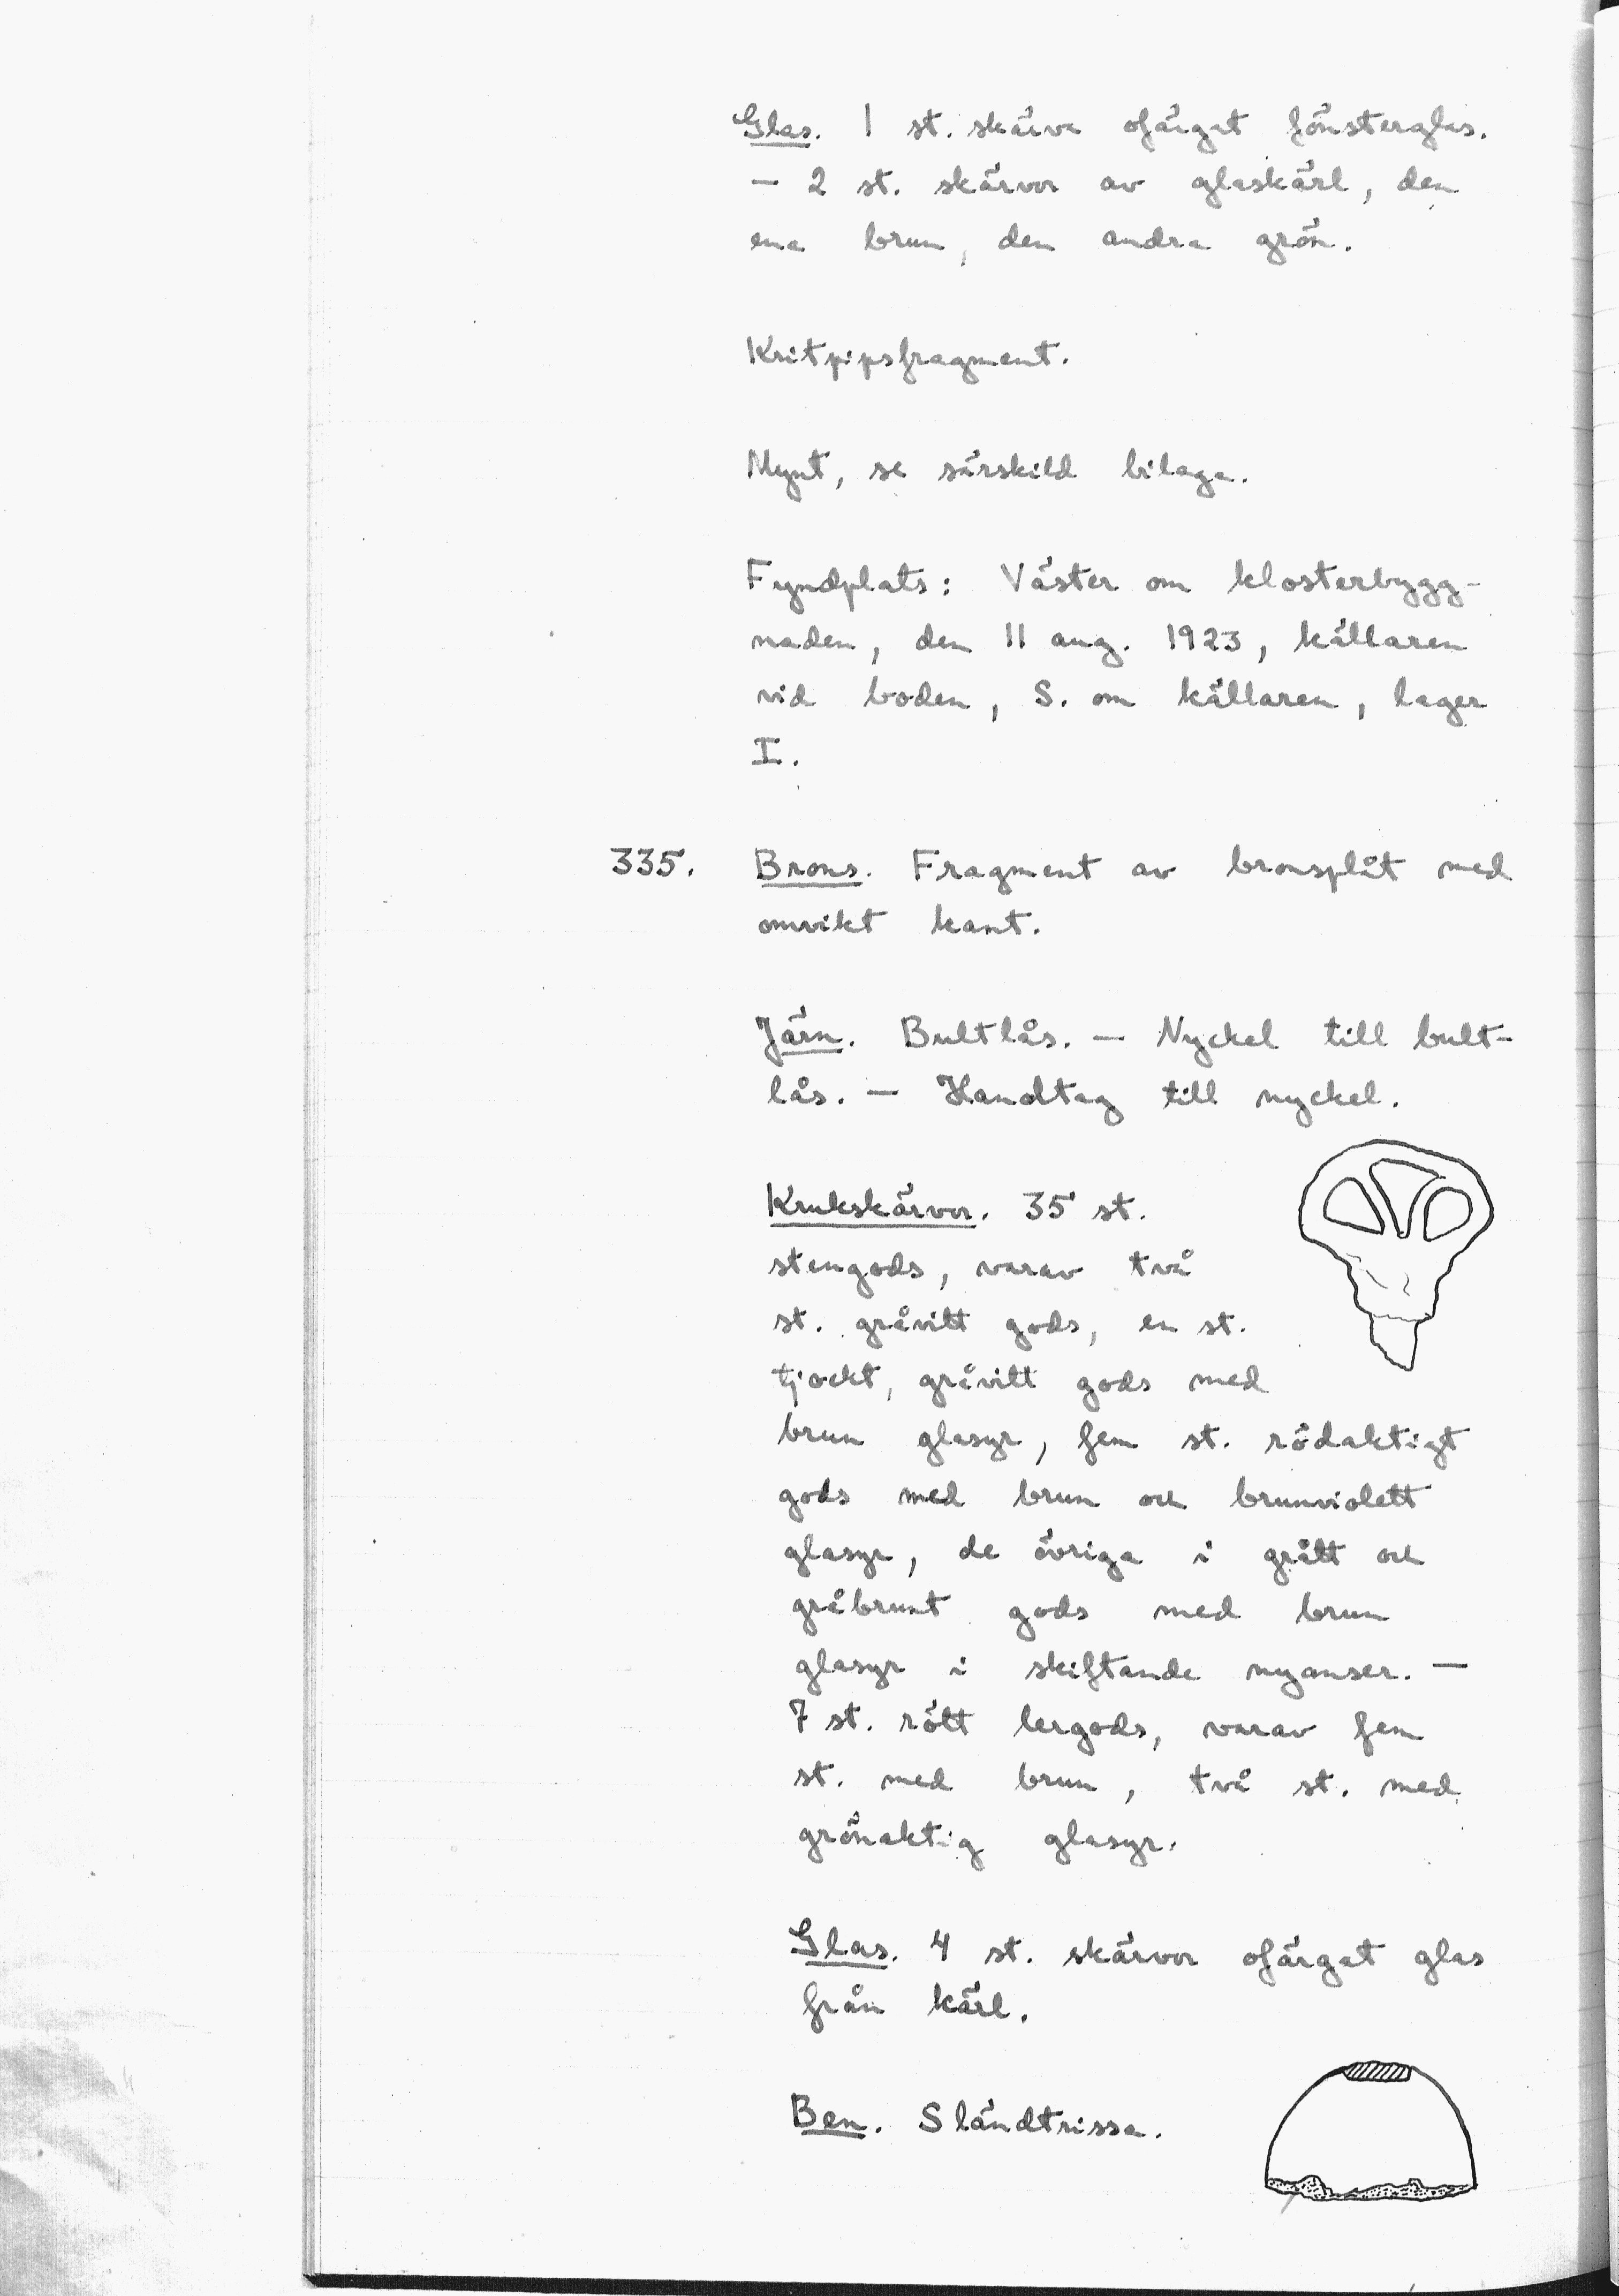 Glas. 1 st. skärva ofärgat fönsterglas.
— 2 st. skärvor av glaskärl, den
ena brun, den andra grön.
Kritpipsfragment.
Mynt, se särskild bilaga.
Fyndplats: Väster om klosterbygg-
naden, den 11 aug. 1923, källaren
vid boden, S. om källaren, lager
I.
335. Brons. Fragment av bronsplåt med
omvikt kant.
Järn. Bultlås. — Nyckel till bult-
lås. — Handtag till nyckel.
Krukskärvor. 35 st.
stengods, varav två
st. gråvitt gods, en st.
tjockt, gråvitt gods med
brun glasyr, fem st. rödaktigt
gods med brun och brunviolett
glasyr, de övriga i grått och
gråbrunt gods med brun
glasyr i skiftande nyanser. —
7 st. rött lergods, varav fem
st. med brun, två st. med
grönaktig glasyr.
Glas. 4 st. skärvor ofärgat glas
från kärl.
Ben. Sländtrissa.